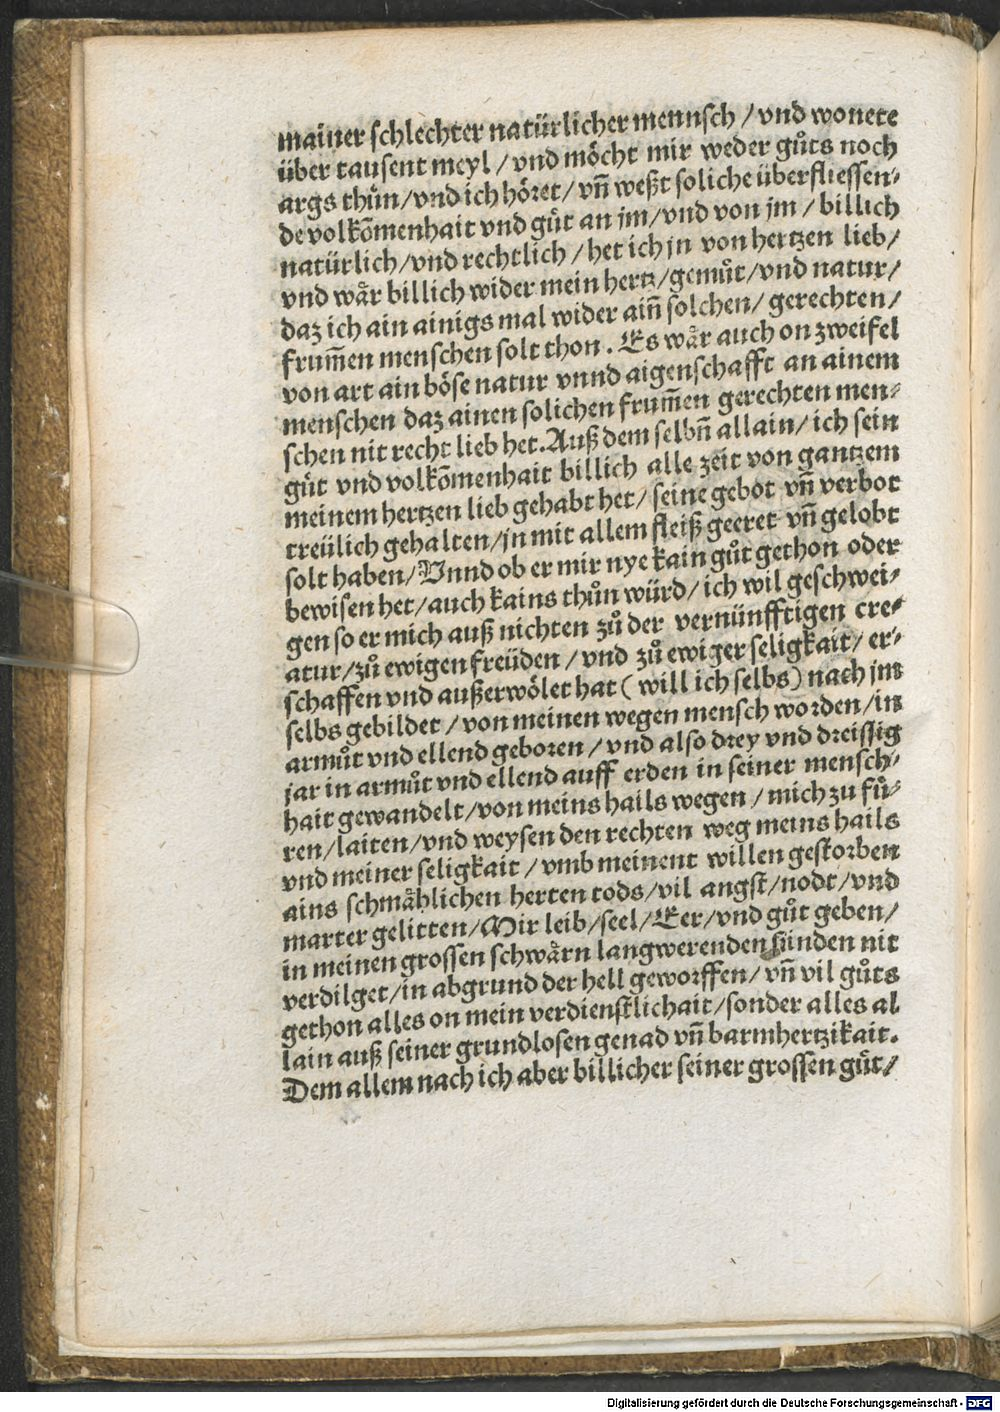 mainer schlechter natürlicher mennsch / vnd wonete
über tausent meyl / vnd möcht mir weder gůts noch
args thůn / vnd ich höret / vñ weßt soliche überfliessen-
de volkõmenhait vnd gůt an jm / vnd von jm / billich
natürlich / vnd rechtlich / het ich jn von hertzen lieb /
vnd wår billich wider mein hertz / gemůt / vnd natur /
daz ich ain ainigs mal wider aiñ solchen / gerechten /
frum̃en menschen solt thon . Es wår auch on zweifel
von art ain böse natur vnnd aigenschafft an ainem
menschen daz ainen solichen frum̃en gerechten men-
schen nit recht lieb het. Auß dem selbñ allain / ich sein
gůt vnd volkõmenhait billich alle zeit von gantzem
meinem hertzen lieb gehabt het / seine gebot vñ verbot
treülich gehalten / jn mit allem fleiß geeret vñ gelobt
solt haben / Vnnd ob er mir nye kain gůt gethon oder
bewisen het / auch kains thůn würd / ich wil geschwei-
gen so er mich auß nichten zů der vernünfftigen cre-
atur / zů ewigen freüden / vnd zů ewiger seligkait / er-
schaffen vnd außerwölet hat ( will ich selbs ) nach jm
selbs gebildet / von meinen wegen mensch worden / in
armůt vnd ellend geboren / vnd also drey vnd dreissig
jar in armůt vnd ellend auff erden in seiner mensch-
hait gewandelt / von meins hails wegen / mich zu fů-
ren / laiten / vnd weysen den rechten weg meins hails
vnd meiner seligkait / vmb meinent willen gestorben
ains schmåhlichen herten tods / vil angst / nodt / vnd
marter gelitten / Mir leib / seel / Eer / vnd gůt geben /
in meinen grossen schwårn langwerenden sünden nit
verdilget / in abgrund der hell geworffen / vñ vil gůts
gethon alles on mein verdienstlichait / sonder alles al
lain auß seiner grundlosen genad vñ barmhertzikait.
Dem allem nach ich aber billicher seiner grossen gůt /
Digitalisierung gefördert durch die Deutsche Forschungsgemeinschaft - DFG